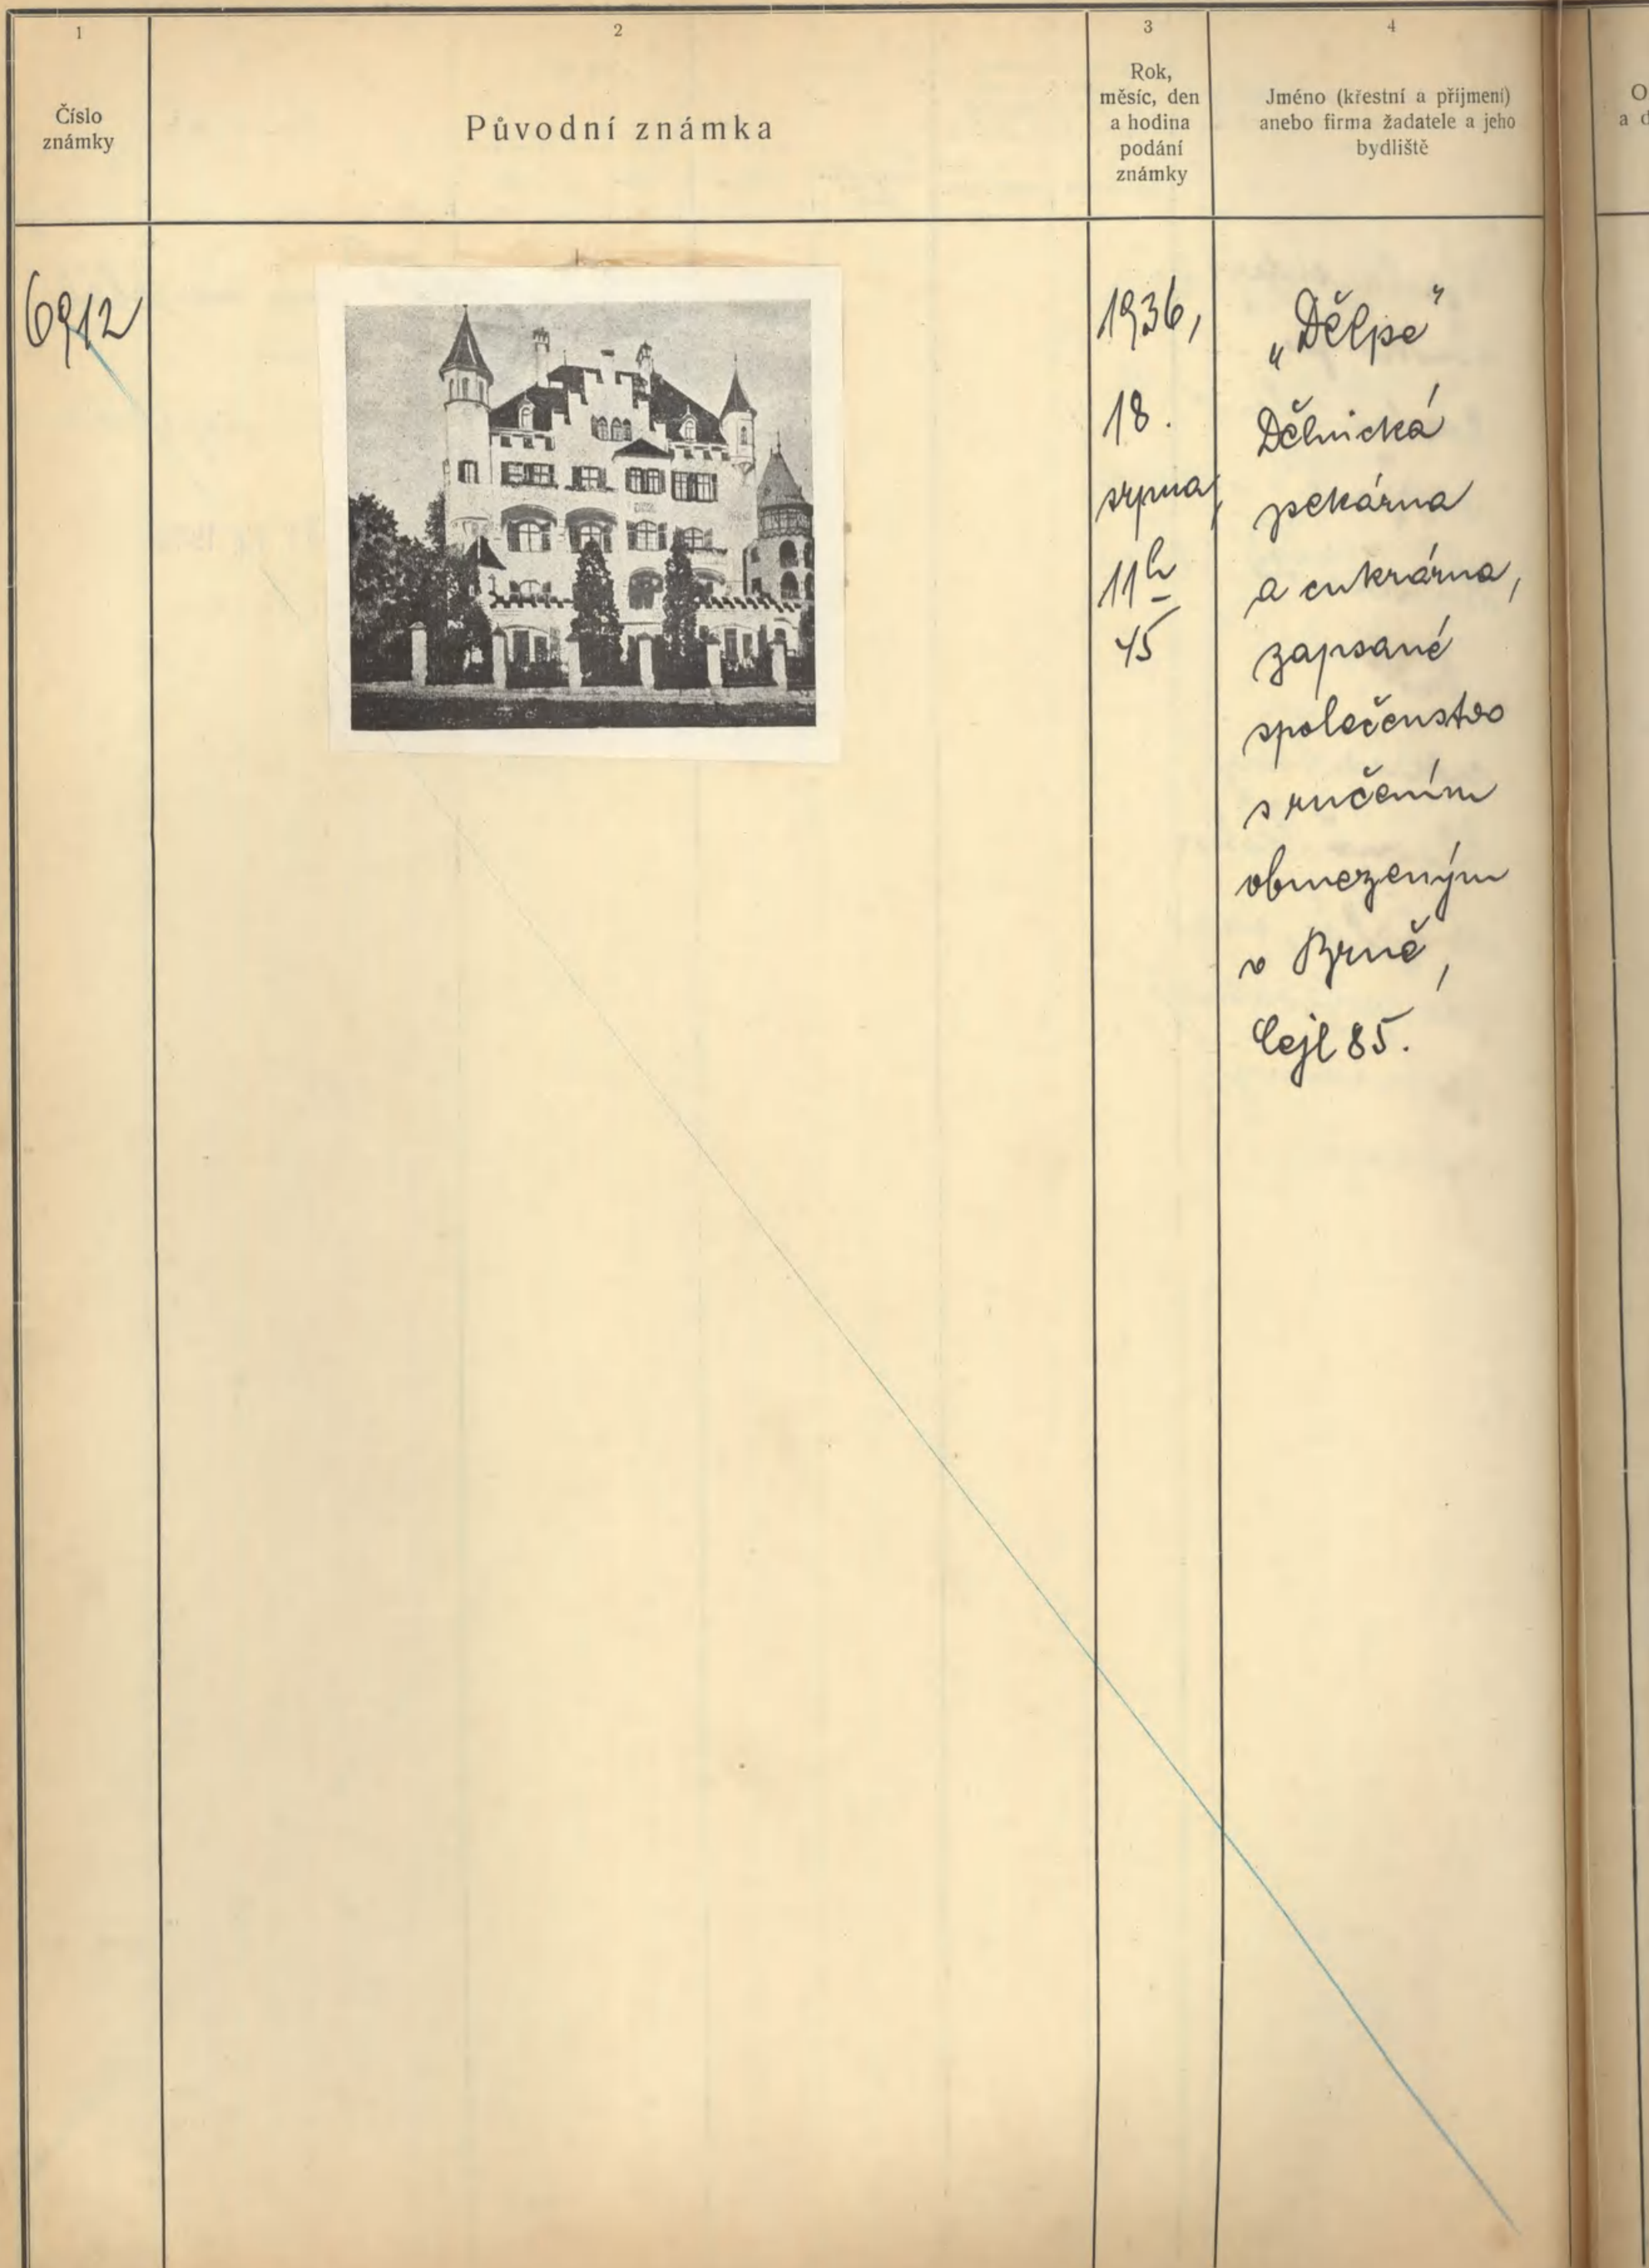 1
Číslo
známky
2
Původní známka
3
Rok,
měsíc, den
a hodina
podání
známky
4
Jméno (křestní a příjmení)
anebo firma žadatele a jeho
bydliště
O
a d
6912
1936,
18.
srpna,
11h
45
„Dělpe"
Dělnická
pekárna
a cukrárna,
zapsané
společenstvo
s ručením
obmezeným
v Brně,
Cejl 85.